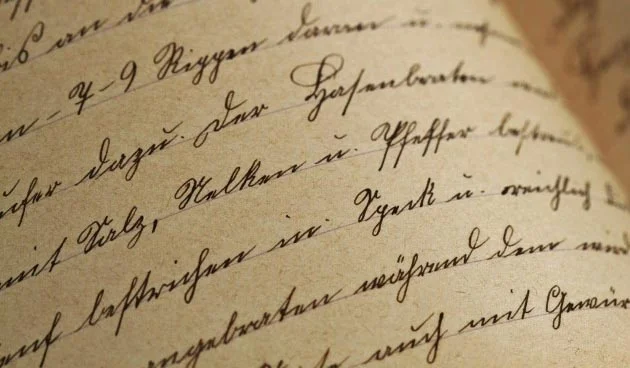 bis an die
7-9 Rippen daran u.
dazu. Der Hasenbraten
mit Salz, Nelken u. Pfeffer bestreut,
bestrichen in Speck u. reichlich
angebraten während dem wird
auch mit Gewür